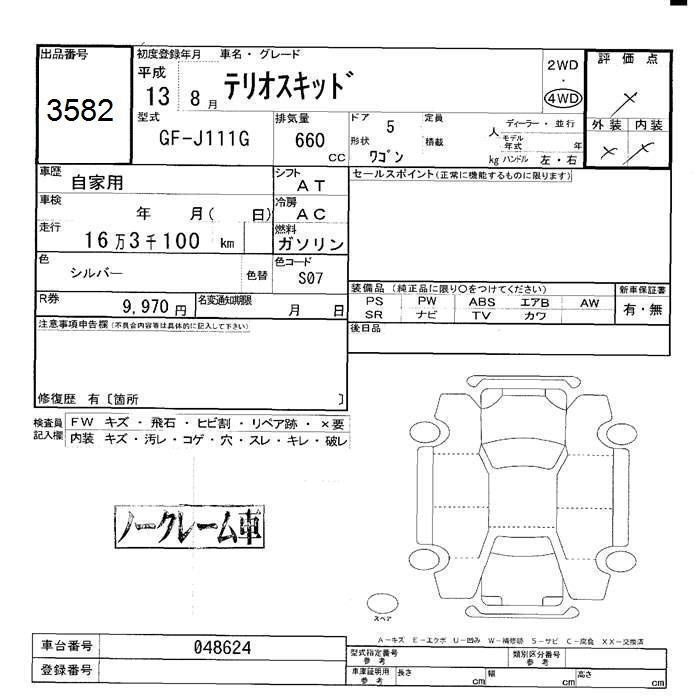 出品番号
3582
初度登録年月 車名・グレード
平成
13 8月 テリオスキッド
2WD
・
4WD
評価点
×
外装 内装
× ×
型式
GF-J111G
排気量
660
cc
ドア 5 定員 人
形状 ワゴン 積載 kg
ディーラー・並行
モデル年式 年
ハンドル 左・右
車歴 自家用
シフト AT
車検 年 月( 日)
冷房 AC
走行 16万3千100 km
燃料 ガソリン
色 シルバー 色替
色コード S07
R券 9,970円
名変通知期限 月 日
セールスポイント(正常に機能するものに限ります)
装備品 (純正品に限り〇をつけてください)
PS PW ABS エアB AW
SR ナビ TV カワ
新車保証書
有・無
後日品
注意事項申告欄(不具合内容等は具体的に記入して下さい)
修復歴 有〔箇所 〕
検査員記入欄
FW キズ・飛石・ヒビ割・リペア跡・×要
内装 キズ・汚レ・コゲ・穴・スレ・キレ・破レ
ノークレーム車
スペア
A-キズ E-エクボ U-凹み W-補修跡 S-サビ C-腐食 XX-交換済
車台番号 048624
登録番号
型式指定番号 参考
類別区分番号 参考
車庫証明用 参考
長さ cm 幅 cm 高さ cm